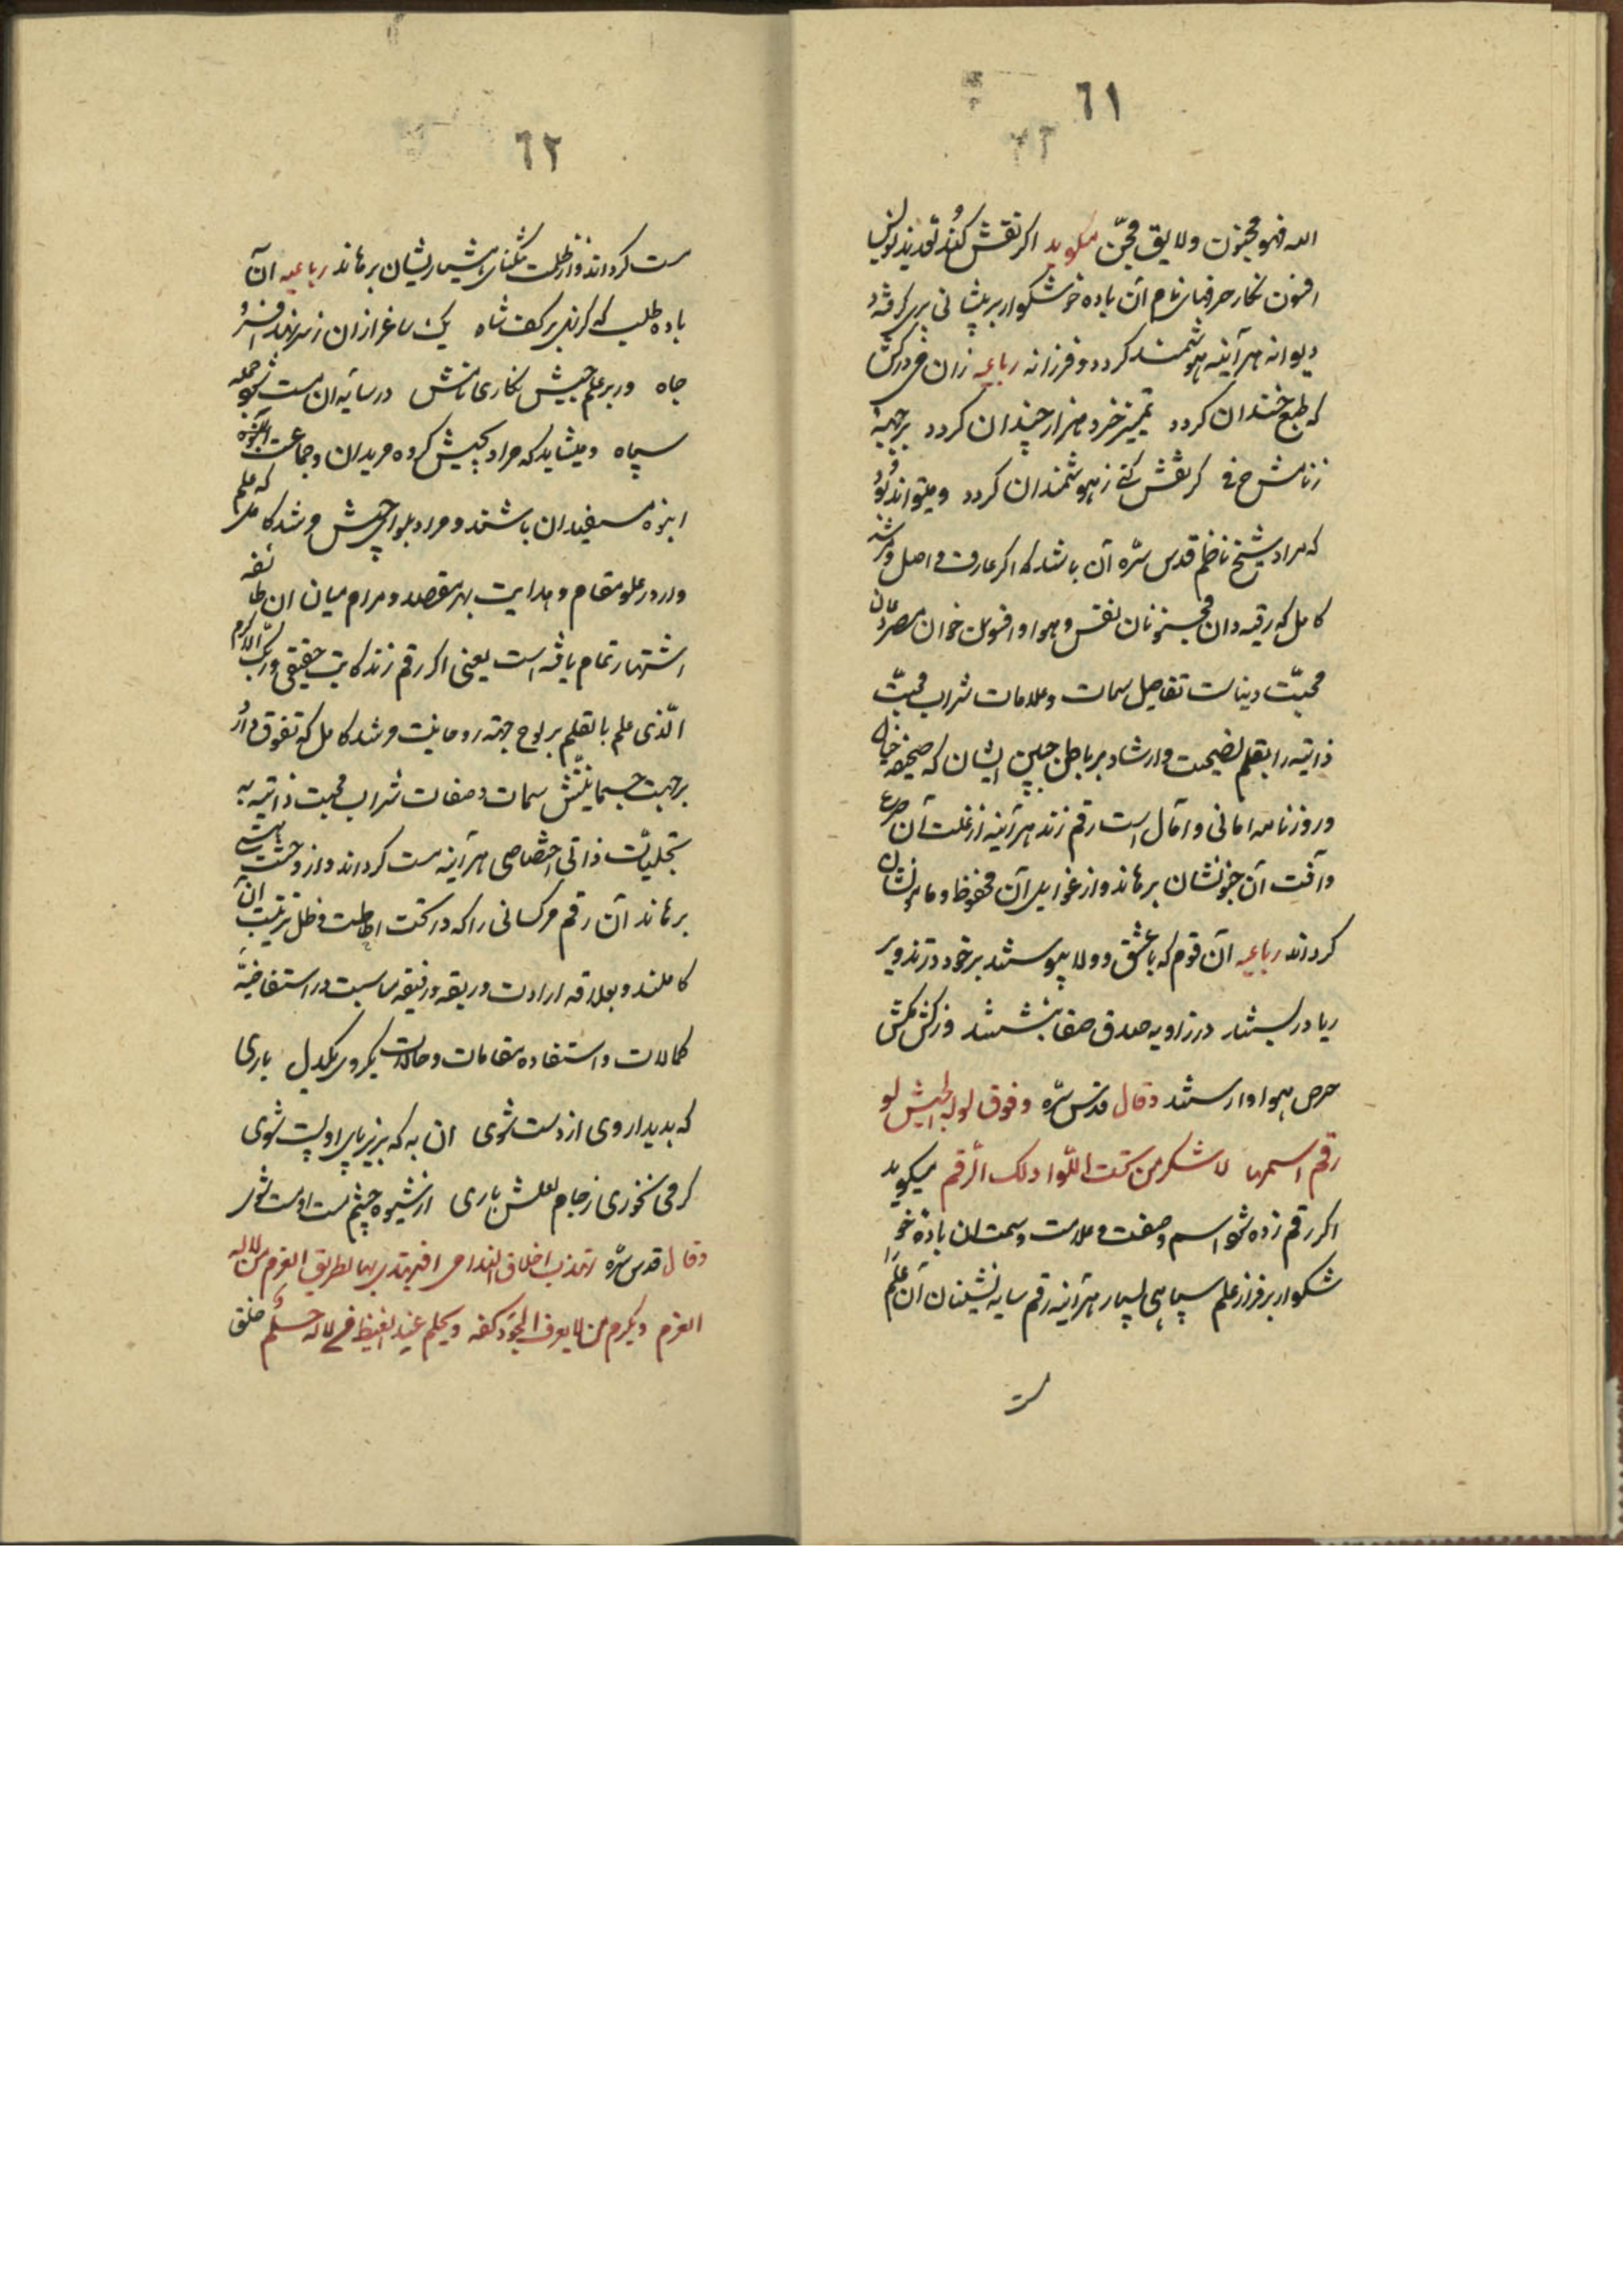 ٦١
الله فهو مجنون ولایق محجن میکوید اکر نقش کند تعویذ نویس
افسون نکار حرفهای نام آن باده خوشکوار بر پیشانی پری کرفته
دیوانه هر آینه هوشمند کردد و فرزانه رباعیه زان می درکش
که طبع خندان کردد تمییز خرد هزار چندان کردد بر جبهه
زنامش حرفی کر نقش کنی ز هوشمندان کردد و میتواند بود
که مراد شیخ ناظم قدس سره آن باشد که اکر عارف واصل و مرشد
کامل که رقیه دان مجنونان نفس و هوا و افسون خوان مصروعان
محبت دنیاست تفاصیل سمات و علامات شراب محبت
ذاتیه را بقلم نصیحت و ارشاد بر باطن جبین ایشان که صحیفه خیال
وروزنامه امانی و آمال است رقم زند هر آینه از علت آن صرع
وآفت آن جنونشان برهاند و از غوایل آن محفوظ و مامونشان
کرداند رباعیه آن قوم که با عشق و ولا پیوستند بر خود در تزویر
ریا در بستند در زاویه صدق و صفا بنشستند وز کش مکش
حرص و هوا وارستند وقال قدس سره وفوق لواء الجیش لو
رقم اسمها لاسکر من تحت اللوا ذلک الرقم میکوید
اکر رقم زده شود اسم و صفت و علامت و سمت آن باده خو
شکوار بر فراز علم سپاهی بسیار هر آینه رقم سایه نشینان آن علم
ست
٦٢
ست کرداند و از ظلمت تنکنای هشیاریشان برهاند رباعیه آن
باده طلب که کر نهی بر کف شاه یک ساغر از آن ز سر نهد افسر
جاه ور بر علم جیش نکاری نامش در سایه آن مست شود جمله
سپاه ومیشاید که مراد بجیش کروه مریدان وجماعت
انبوه مستفیدان باشند و مراد بلوای جیش مرشد کامل که علم
وار در علو مقام و هدایت بهر مقصد و مرام میان آن طایفه
اشتهار تمام یافته است یعنی اکر رقم زند کاتب حقیقی وربک الاکرم
الذی علم بالقلم بر لوح جبهه روحانیت مرشد کامل که تفوق دارد
بر جهت جسمانیتش سمات و صفات شراب محبت ذاتیه به
تجلیات ذاتی اختصاصی هر آینه مست کرداند و از وحشت هستی
برهاند آن رقم مر کسانی را که در تحت احاطت و ظل تربیت آن
کاملند و بعلاقه ارادت و ربقه و رقیقه مناسبت در استفاضه
کمالات و استفاده مقامات و حالات یکروی و یکدل باری
که بدیدار وی از دست شوی آن به که بزیر پای او پست شوی
کر می نخوری ز جام لعلش باری از شیوه چشم مست او مست شوی
وقال قدس سره تهذب اخلاق الندامی فیهتدی بها لطریق العزم من لا له
العزم ویکرم من لا یعرف الجود کفه ویحلم عند الغیظ من لا له حلم خلق